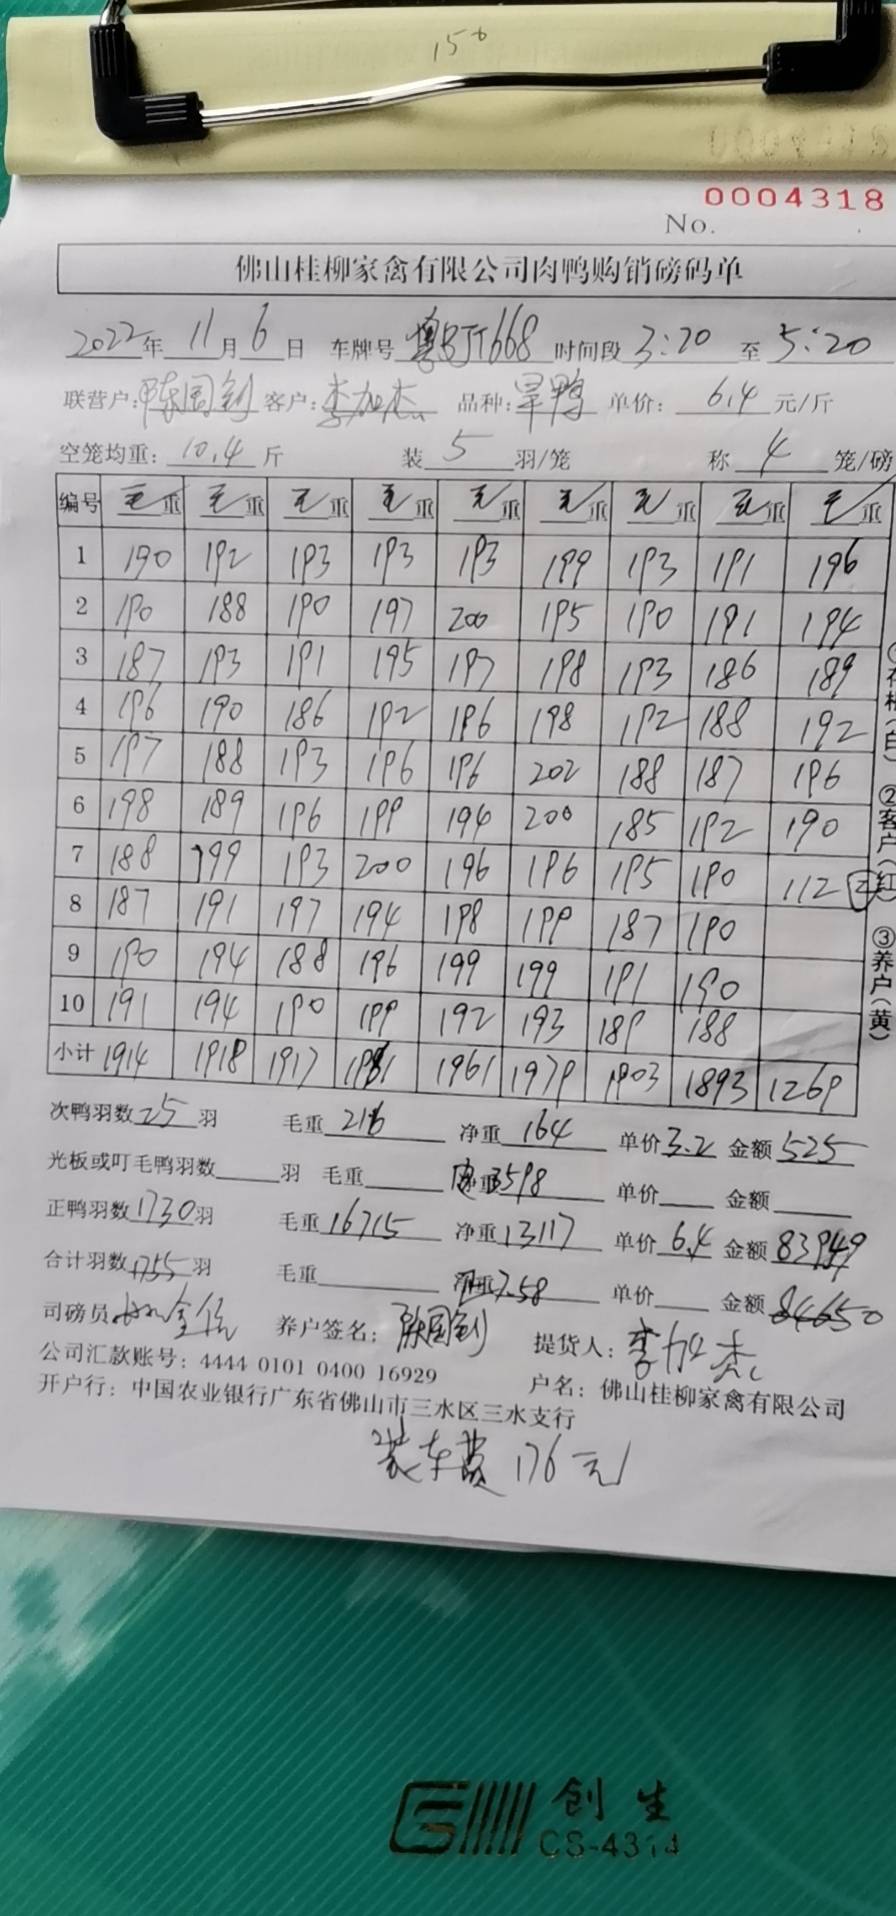 156
0004318
No.
佛山桂柳家禽有限公司肉鸭购销磅码单
2022年 11月6日 车牌号 粤BJT668 时间段 3:20 至 5:20
联营户: 陈国钊 客户: 李加杰 品种: 旱鸭 单价: 6.4 元/斤
空笼均重: 10.4 斤 装 5 羽/笼 称 4 笼/磅
编号 毛重 毛重 毛重 毛重 毛重 毛重 毛重 毛重 毛重
1 190 192 193 193 193 199 193 191 196
2 190 188 190 197 200 195 190 191 194
3 187 193 191 195 197 198 193 186 189
4 196 190 186 192 196 198 192 188 192
5 197 188 193 196 196 202 188 187 196
6 198 189 196 199 194 200 185 192 190
7 188 199 193 200 196 196 195 190 112
8 187 191 197 194 198 199 187 190
9 190 194 188 196 199 199 191 190
10 191 194 190 199 192 193 189 188
小计 1914 1918 1917 1961 1961 1979 1903 1893 1269
次鸭羽数 25 羽 毛重 216 净重 164 单价 3.2 金额 525
光板或叮毛鸭羽数 羽 毛重 净重 3598 单价 金额
正鸭羽数 1730 羽 毛重 16715 净重 13117 单价 6.4 金额 83949
合计羽数 1755 羽 毛重 净重 7.58 单价 金额 84650
司磅员 养户签名: 陈国钊 提货人: 李加杰
公司汇款账号: 4444 0101 0400 16929 户名: 佛山桂柳家禽有限公司
开户行: 中国农业银行广东省佛山市三水区三水支行
装车费 176元
②客户(红) ③养户(黄)
创生
CS-4314